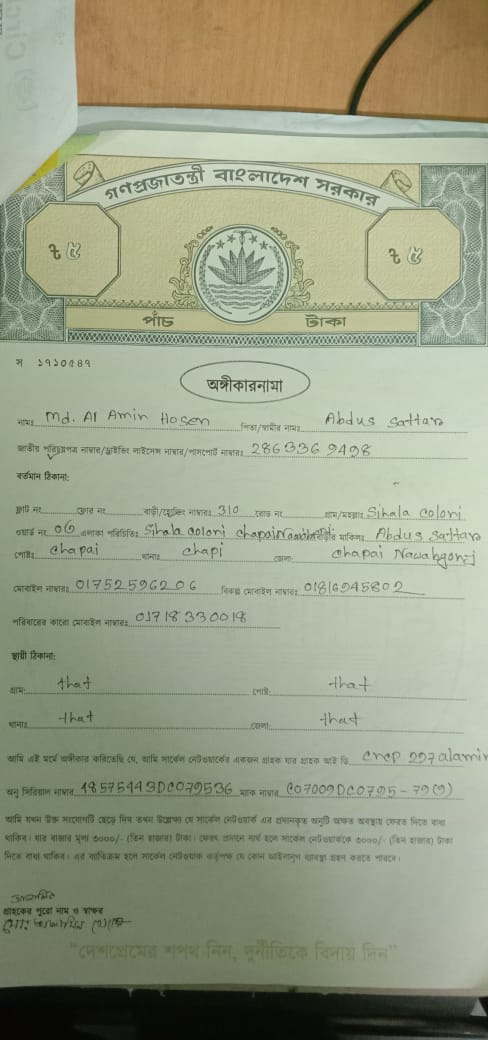 গণপ্রজাতন্ত্রী বাংলাদেশ সরকার
৳ ৫ ৳ ৫
পাঁচ টাকা
স ১৭১০৫৪৭
অঙ্গীকারনামা
নামঃ Md. Al Amin Hosen পিতা/স্বামীর নামঃ Abdus Sattar
জাতীয় পরিচয়পত্র নাম্বার/ড্রাইভিং লাইসেন্স নাম্বার/পাসপোর্ট নাম্বারঃ 286 336 9498
বর্তমান ঠিকানা:
ফ্লাট নং ফ্লোর নং বাড়ী/হোল্ডিং নাম্বারঃ 310 রোড নং গ্রাম/মহল্লাঃ Sihala coloni
ওয়ার্ড নং 06 এলাকা পরিচিতিঃ Sihala coloni chapai বাড়ীর মালিকঃ Abdus Sattar
পোষ্টঃ chapai থানাঃ chapi জেলা: chapai Nawabgonj
মোবাইল নাম্বারঃ 01752596206 বিকল্প মোবাইল নাম্বারঃ 01816945802
পরিবারের কারো মোবাইল নাম্বারঃ 01718330018
স্থায়ী ঠিকানা:
গ্রাম: that পোষ্ট: that
থানাঃ that জেলা: that
আমি এই মর্মে অঙ্গীকার করিতেছি যে, আমি সার্কেল নেটওয়ার্কের একজন গ্রাহক যার গ্রাহক আই ডি cncp 227 alamin
অনু সিরিয়াল নাম্বার 48575443DC079536 ম্যাক নাম্বার C07009DC0795-79(9)
আমি যখন উক্ত সংযোগটি ছেড়ে দিব তখন উল্লেখ্য যে সার্কেল নেটওয়ার্ক এর প্রদানকৃত অনুটি অক্ষত অবস্থায় ফেরত দিতে বাধ্য
থাকিব। যার বাজার মূল্য ৩০০০/- (তিন হাজার) টাকা। ফেরৎ প্রদানে ব্যর্থ হলে সার্কেল নেটওয়ার্ককে ৩০০০/- (তিন হাজার) টাকা
দিতে বাধ্য থাকিব। এর ব্যতিক্রম হলে সার্কেল নেটওয়ার্ক কর্তৃপক্ষ যে কোন আইনানুগ ব্যবস্থা গ্রহন করতে পারবে।
গ্রাহকের পুরো নাম ও স্বাক্ষর
মোঃ
"দেশপ্রেমের শপথ নিন, দুর্নীতিকে বিদায় দিন"